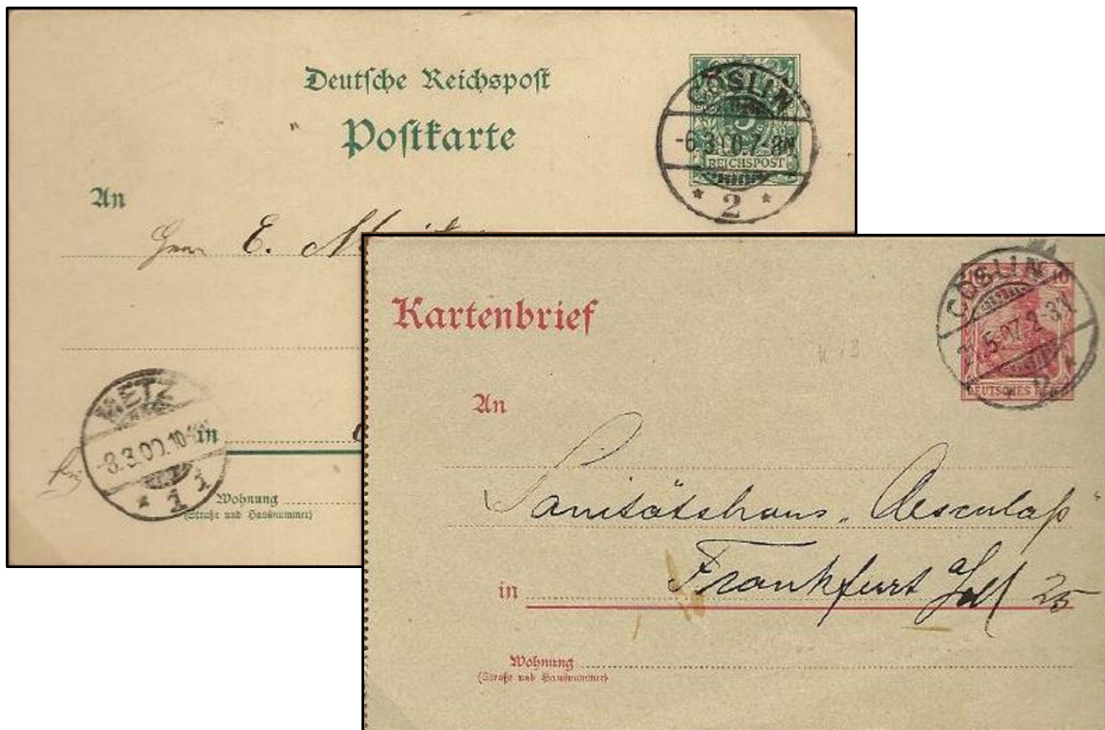 Deutsche Reichspost
Postkarte
CÖSLIN
-6.3.00.7-8N.
REICHSPOST
* 2 *
An
Herrn E.
METZ
-8.3.00.10-
* 1 1
in
Wohnung
(Straße und Hausnummer)
Kartenbrief
10
CÖSLIN
5-07.2-3N.
DEUTSCHES REICH
An
Sanitätshaus „Aesculap"
in Frankfurt a/M 25
Wohnung
(Straße und Hausnummer)